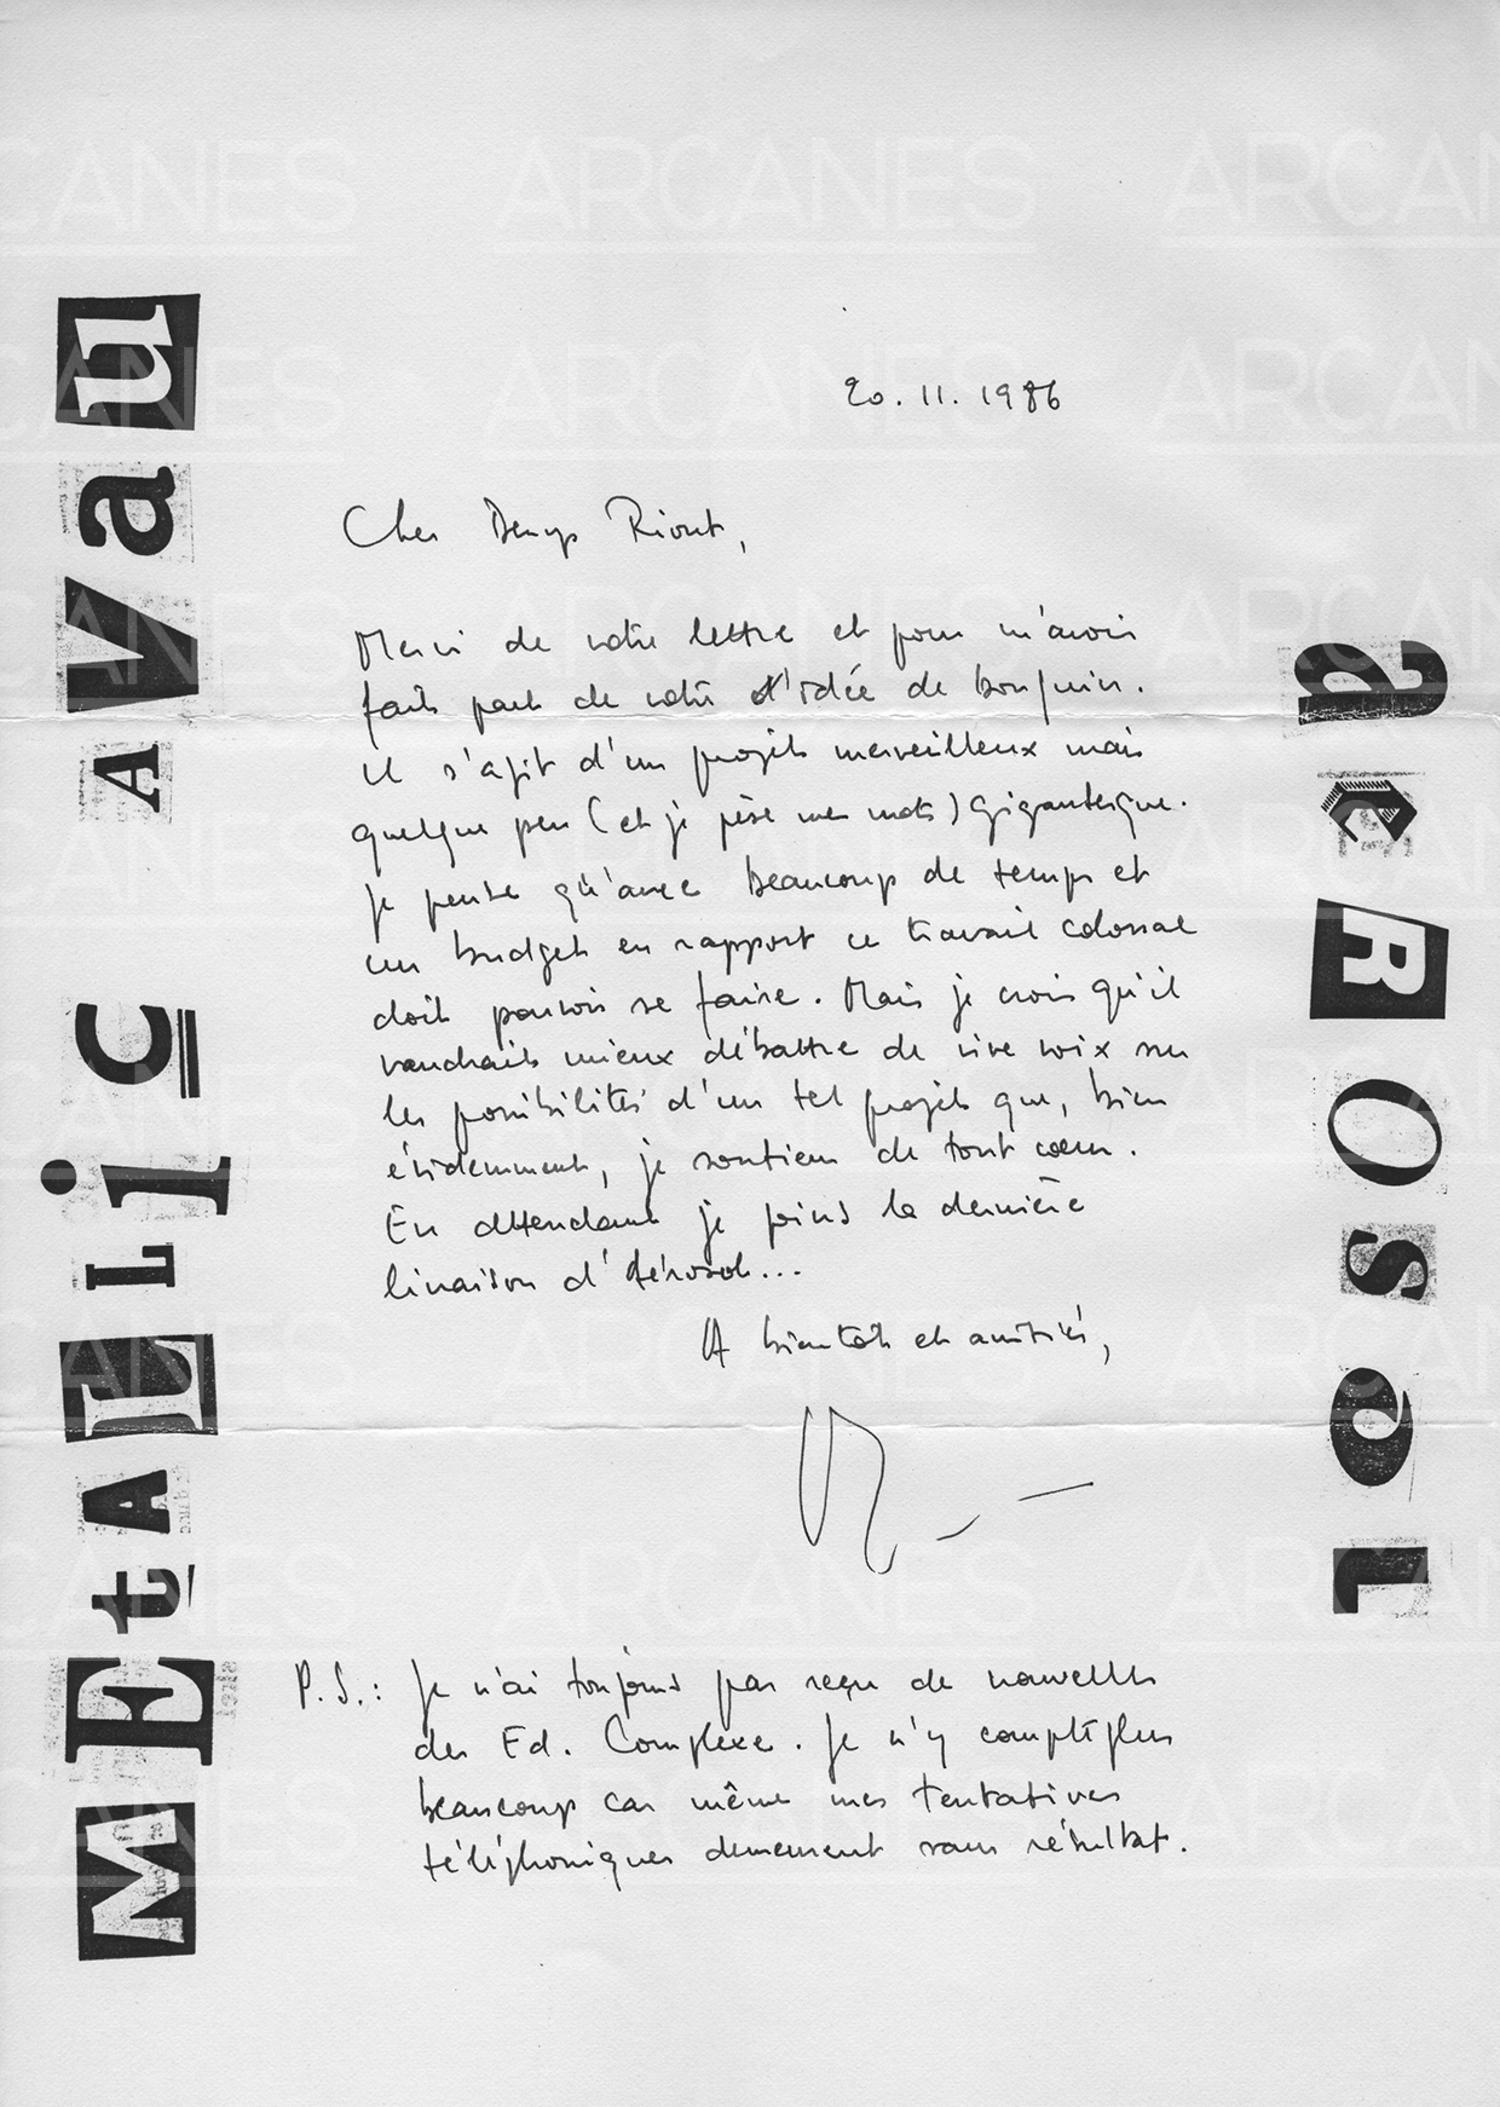 MEtALLiC AVau
aeROSol
20.11.1986
Cher Denys Riout,
Merci de votre lettre et pour m'avoir
fait part de votre d'idée de bouquin.
Il s'agit d'un projet merveilleux mais
quelque peu (et je pèse mes mots) gigantesque.
Je pense qu'avec beaucoup de temps et
un budget en rapport ce travail colossal
doit pouvoir se faire. Mais je crois qu'il
vaudrait mieux débattre de vive voix sur
les possibilités d'un tel projet que, bien
évidemment, je soutiens de tout cœur.
En attendant je joins la dernière
livraison d'Aérosol...
A bientôt et amitiés,
P.S.: Je n'ai toujours pas reçu de nouvelles
des Ed. Complexe. Je n'y compte plus
beaucoup car même mes tentatives
téléphoniques demeurent sans résultat.
ARCANES